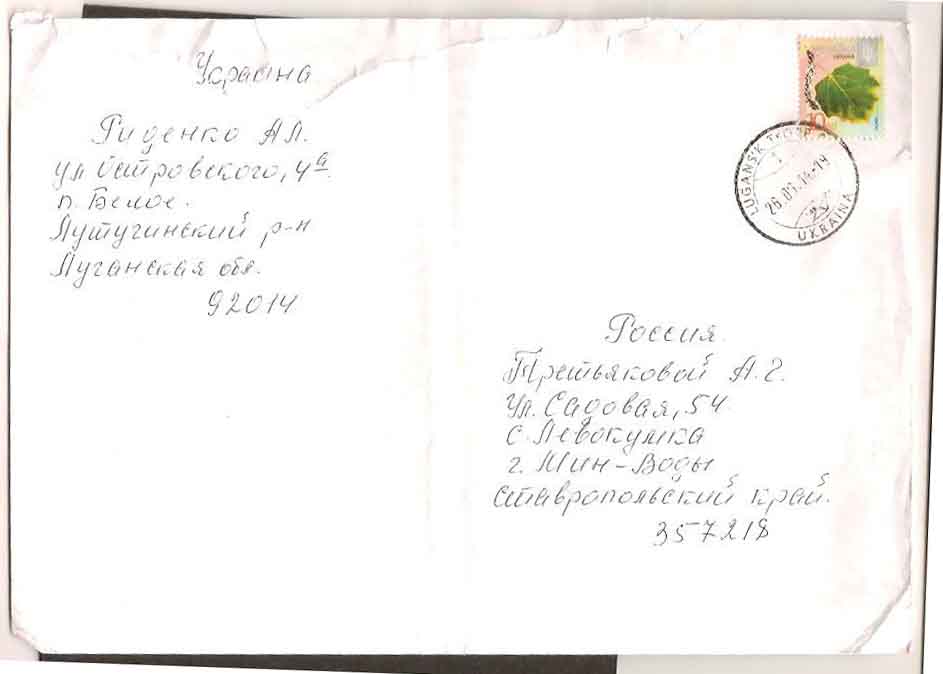 Украина
Гиденко А Л.
ул Островского, 4а
п. Белое.
Лутугинский р-н
Луганская обл.
92014
LUGANS'K
26.09.14-19
UKRAINA
Россия.
Третьяковой А. Г.
Ул. Садовая, 54
с. Левокумка
г. Мин-Воды
Ставропольский край.
357218